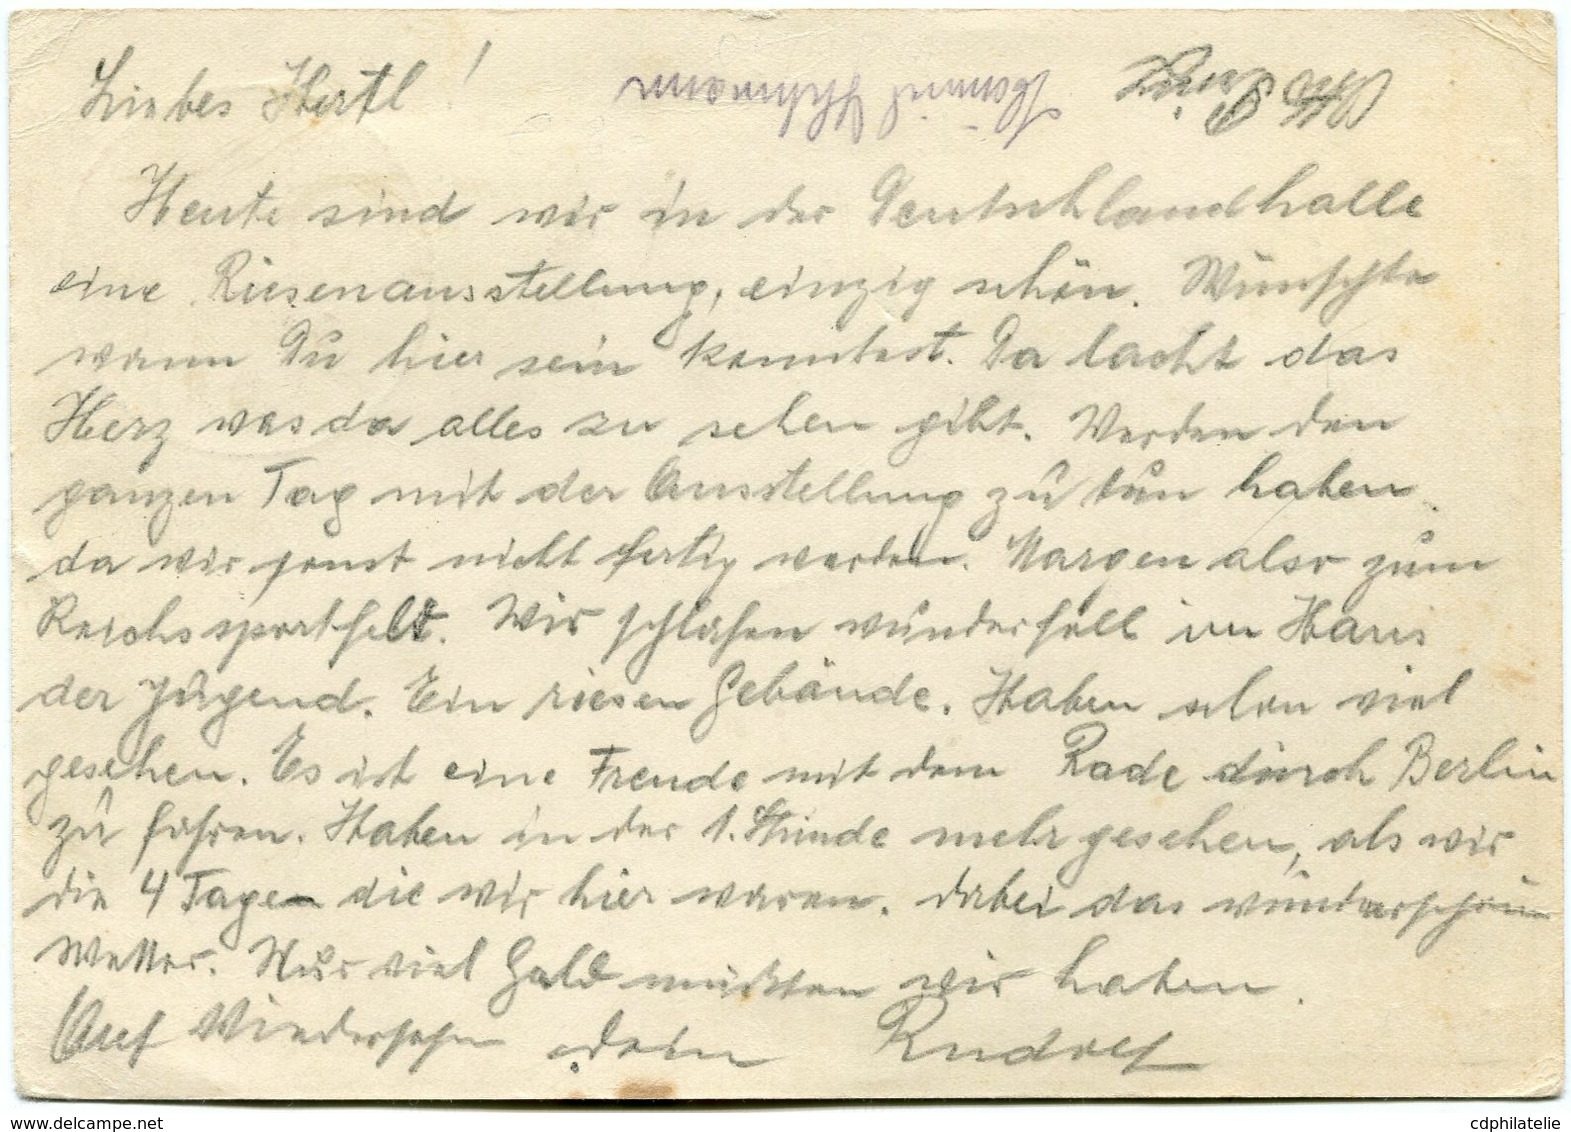 Liebes Hertl!
Heute sind wir in der Deutschlandhalle
eine Riesenausstellung, einzig schön. Wünschte
wenn Du hier sein konntest. Da lacht das
Herz was da alles zu sehen gibt. Werden den
ganzen Tag mit der Ausstellung zu tun haben
da wir sonst nicht fertig werden. Morgen also zum
Reichssportfelt. Wir schlafen wundervoll im Haus
der Jugend. Ein riesen Gebäude. Haben schon viel
gesehen. Es ist eine Freude mit dem Rade durch Berlin
zu fahren. Haben in der 1. Stunde mehr gesehen, als wir
die 4 Tage die wir hier waren. Dabei das wunderschöne
Wetter. Nur viel Geld müssten wir haben.
Auf Wiedersehn dein Rudolf
www.delcampe.net
cdphilatelie